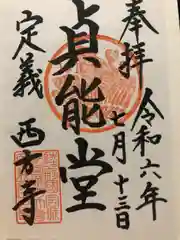 奉拝
令和六年
七月十三日
貞能堂
定義
西方寺